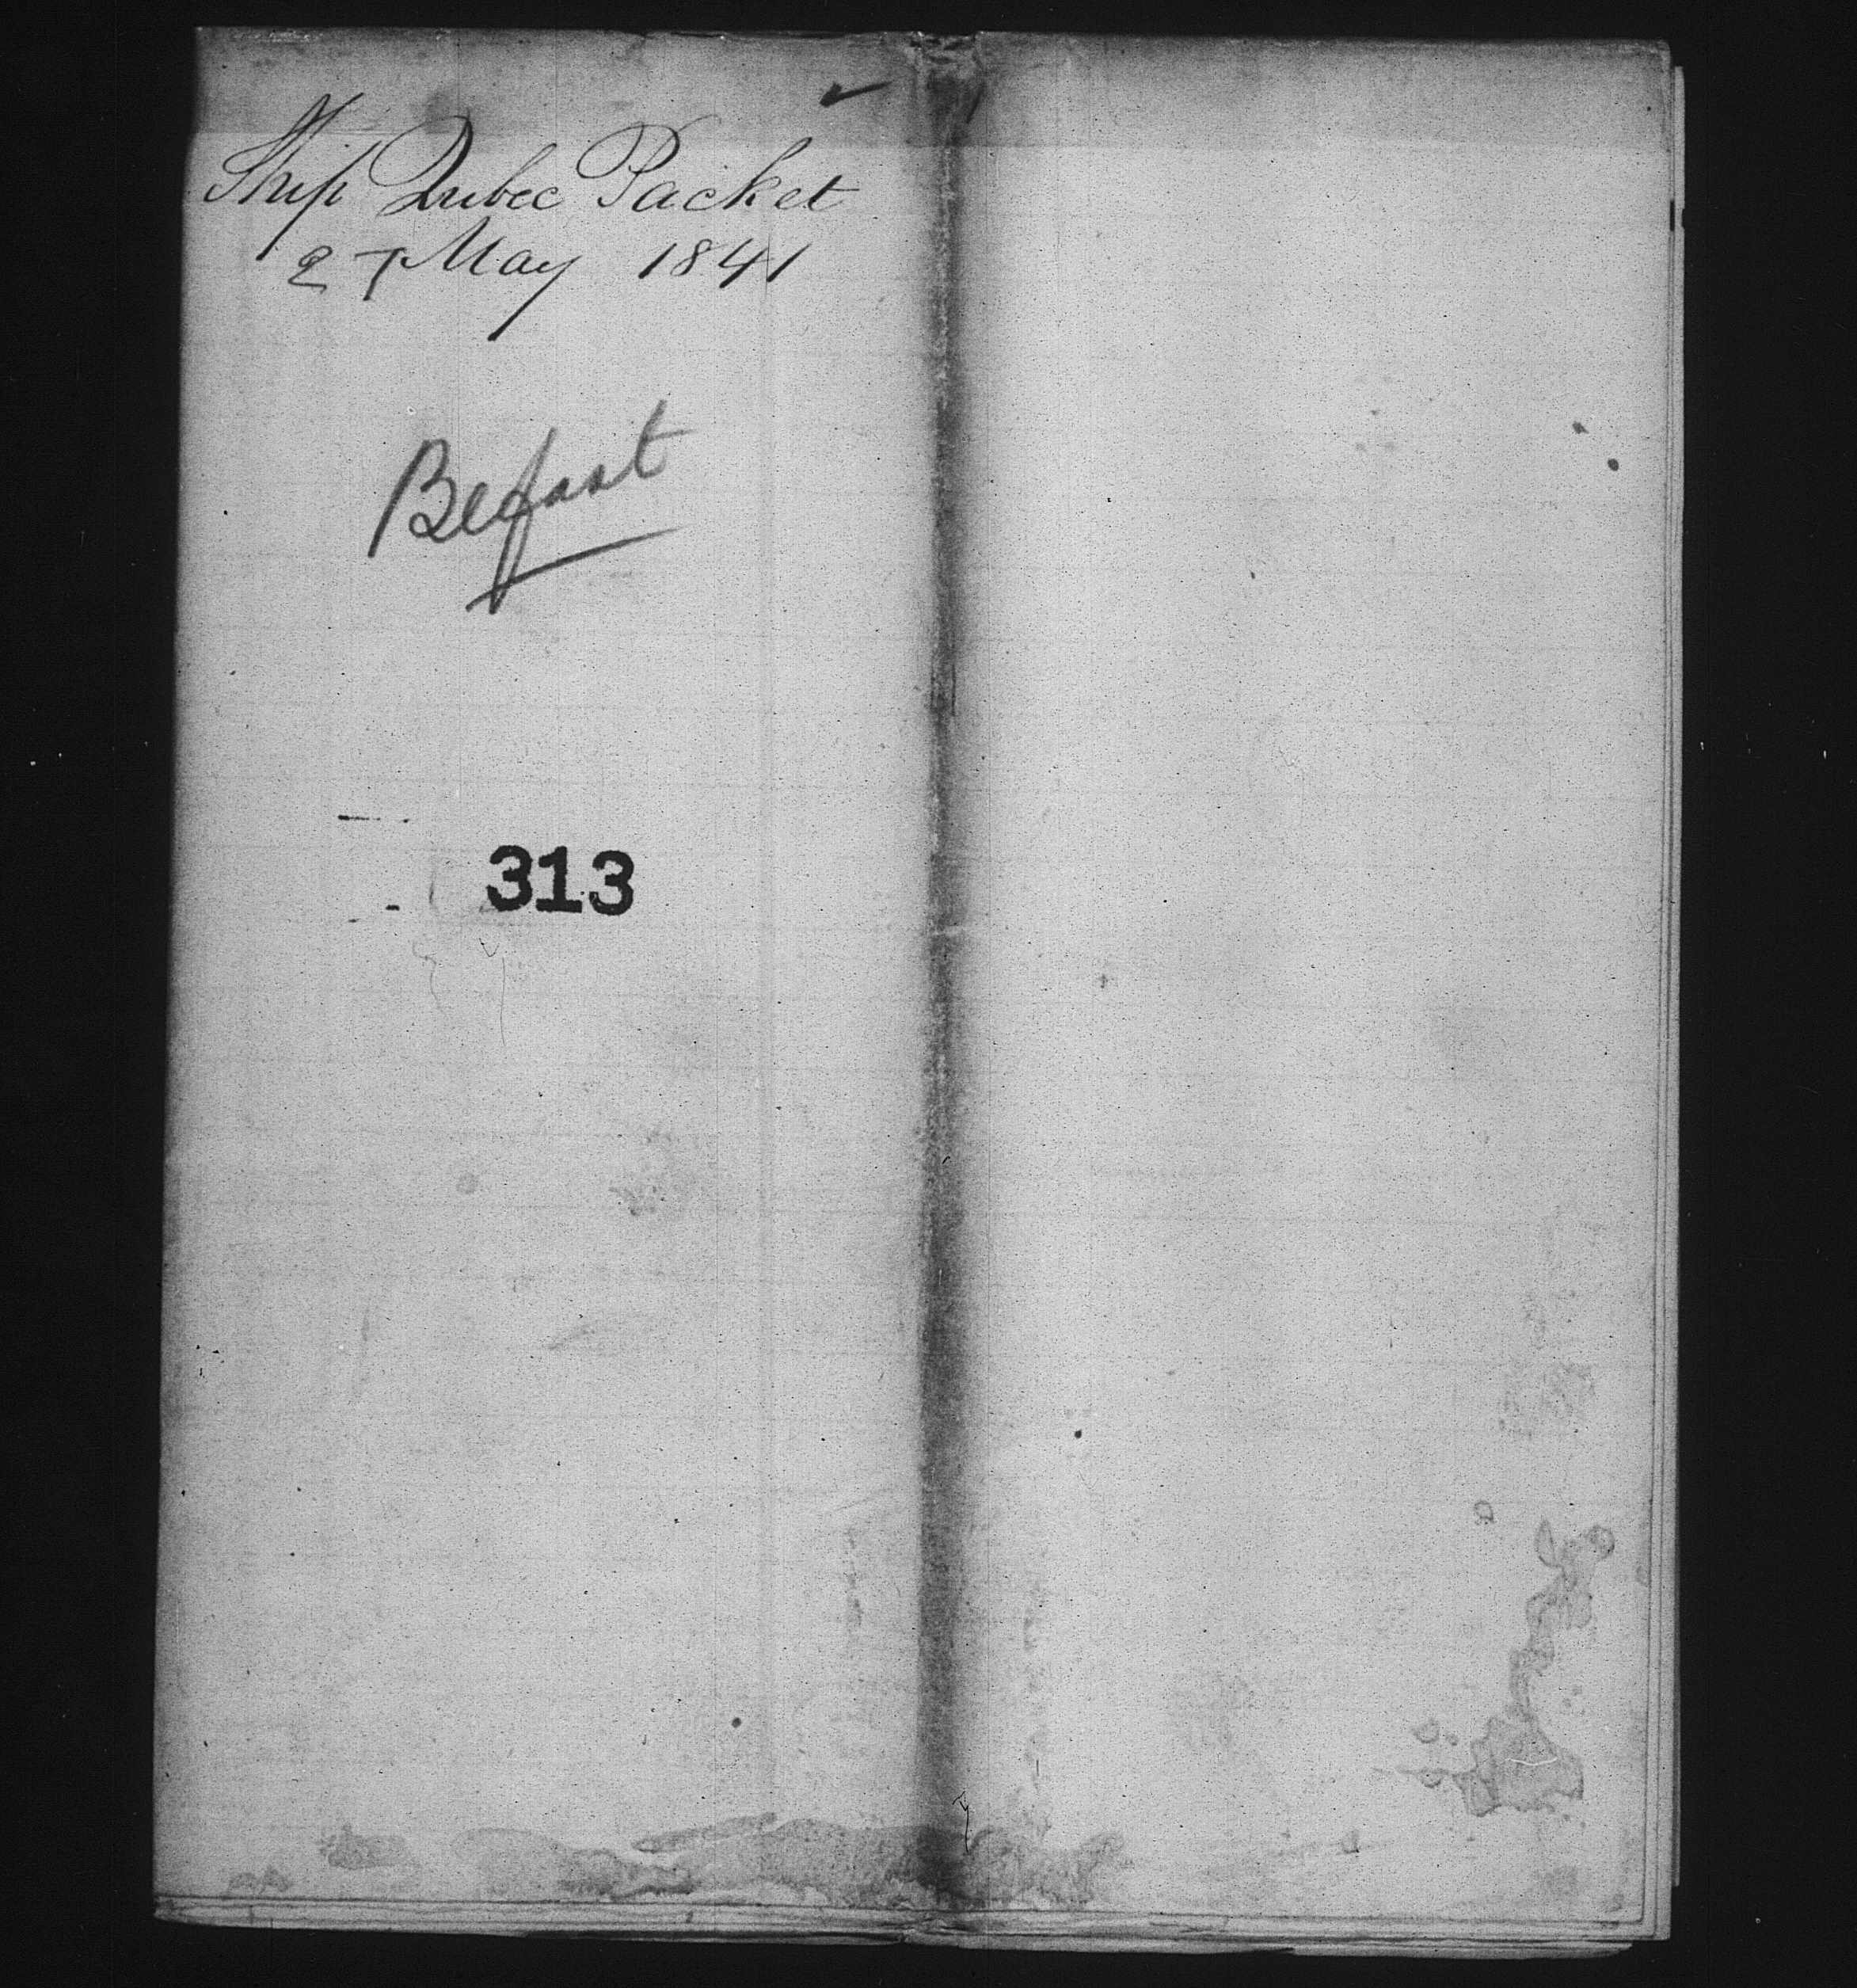 Ship Qubec Packet
27 May 1841
Belfast
313